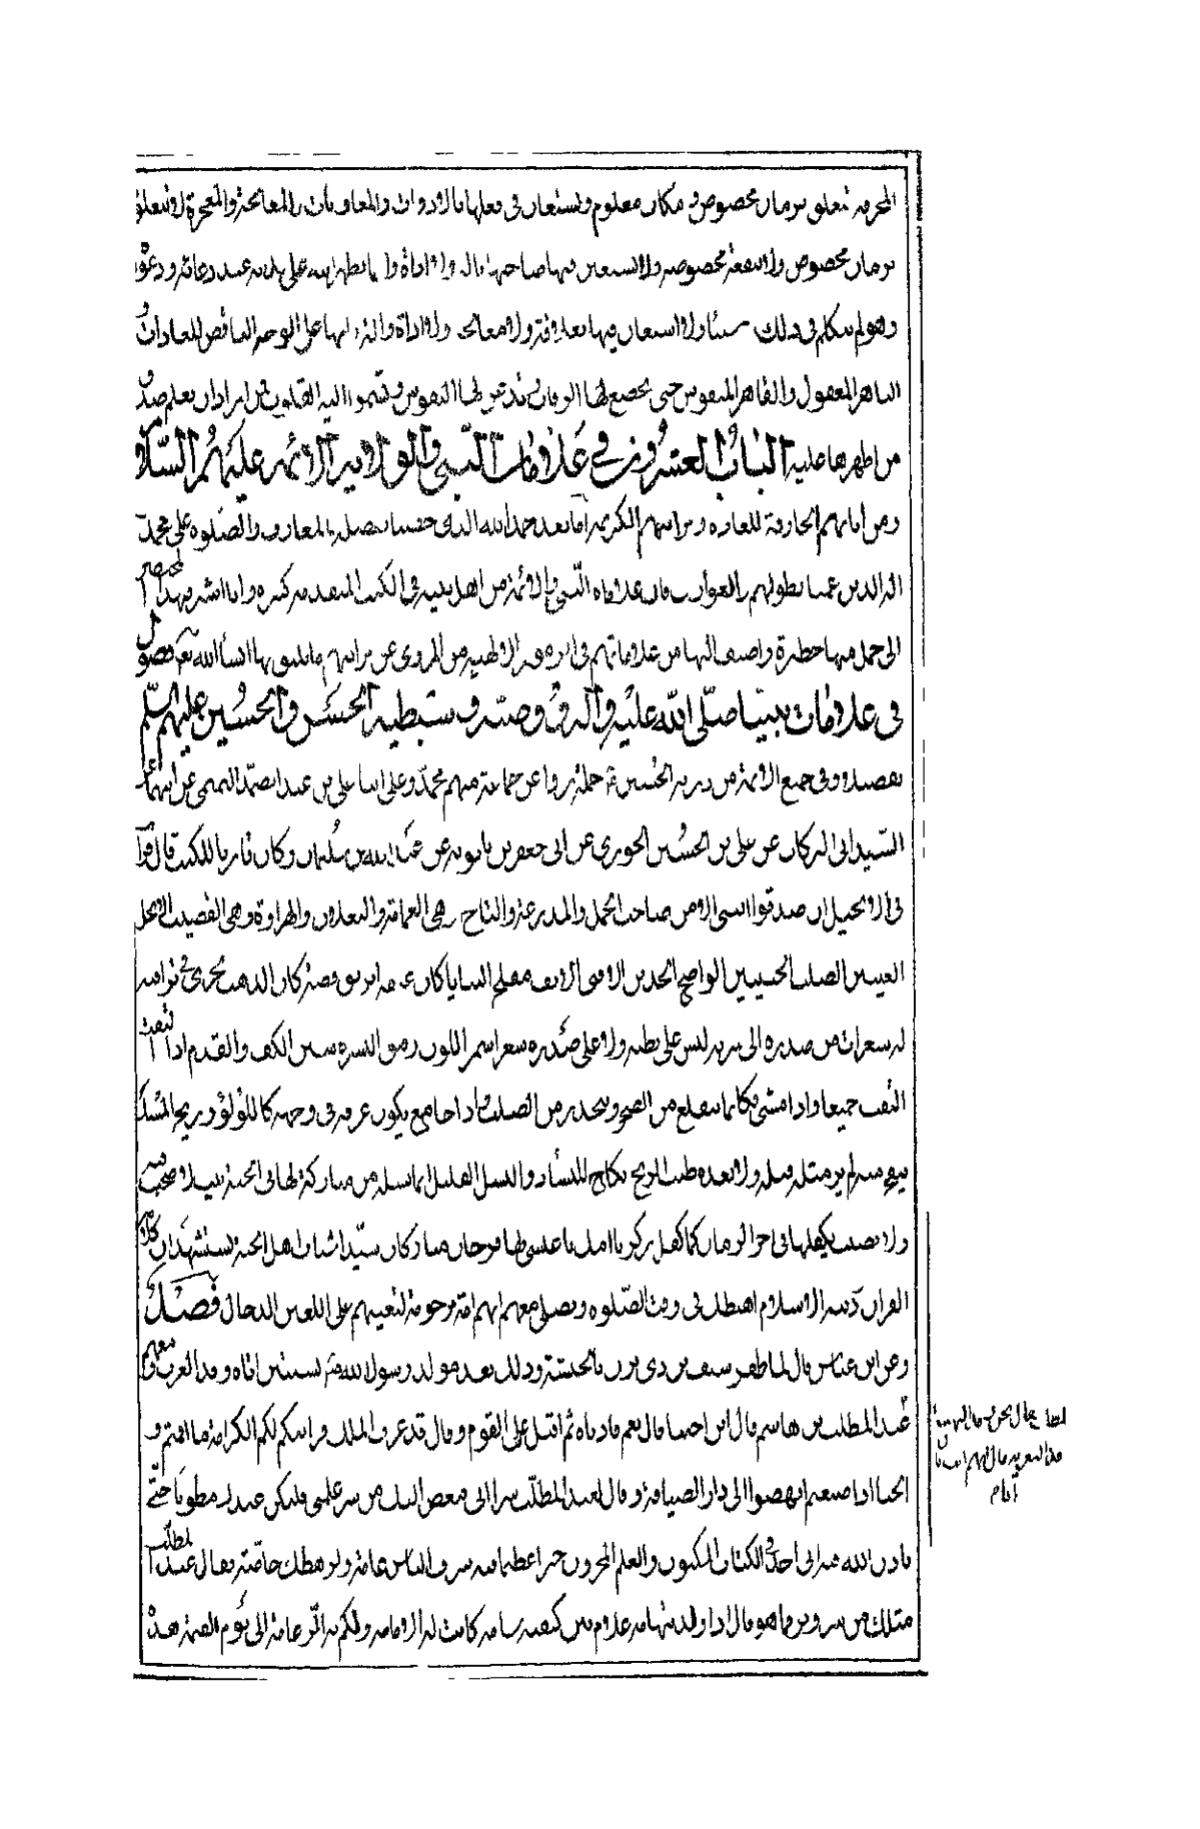 المخرقة تتعلق بزمان مخصوص ومكان معلوم ويستعان في فعلها بالادوات والمعاونات والمعالجة والمعجزة لا تتعلق
بزمان مخصوص ولا ببقعة مخصوصة ولا يستعين فيها صاحبها بالة ولا اداة وانما يظهرها الله على يديه عند دعائه ودعوته
وهو لم يتكلم في ذلك شيئا ولا استعان فيها بعلاقة ولا معالجة ولا اداة والة انها على الوجه الناقض للعادات
الباهر للعقول والقاهر للنفوس حتى يخضع لها الرقاب وتذعن لها النفوس وتسموا اليه القلوب ان يعلم صدق
من اظهرها عليه الباب العشرون في علامات النبي والولاية الائمة عليهم السلام
ومن اياتهم الخارقة للعادة وبراهينهم الكريمة اما بعد حمد الله الذي خصنا بفضل المعارف والصلوة على محمد
اله الذين عمنا بطولهم بالعوارف فان علامات النبي والائمة من اهل بيته في الكتب المتقدمة كثيرة وانا نشير بهذا المختصر
الى جمل منها خطرة واضيف اليها من علاماتهم في من المروي عن براهينهم ما يليق بها انشأ الله تعالى فصول
في علامات نبينا صلى الله عليه واله ووصيه وسبطيه الحسن والحسين عليهم السلم
تفصيلا وفي جميع الائمة من ذرية الحسين جملة روا عن جماعة منهم محمد وعلي ابنا علي بن عبد الصمد التميمي عن ابيهما عن
السيد ابي البركات عن علي بن الحسين الجوري عن ابي جعفر بن بابويه عن عبد الله بن سليمان وكان قاريا للكتب قال قرأت
في الانجيل ان صدقوا النبي الامي صاحب الجمل والمدرعة والتاج وهي العمامة والنعلان والهراوة وهي القضيب الانجل
العينين الصلت الجبينين الواضح الخدين الاقنى الانف مفلج الثنايا كان عنقه ابريق فضة كان الذهب يجري في تراقيه
له شعرات من صدره الى سرته ليس على بطنه ولا على صدره شعر اسمر اللون دقيق المسربة شثن الكف والقدم اذا التفت
التفت جميعا واذا مشى فكانما يتقلع من الصخر وينحدر من الصلب اذا جامع يكون عرقه في وجهه كاللؤلؤ وريح المسك
ينفح منه لم ير مثله قبله ولا بعده طيب الريح نكاح للنساء ذو النسل القليل انما نسله من مباركة لها في الجنة بيت لا صخب فيه
ولا نصب يكفلها في اخر الزمان كما كفل زكريا امك يا عيسى لها فرخان مباركان سيدا شباب اهل الجنة يستشهدان كلامه
القران دينه الاسلام اهبطك في وقت الصلوة ويصلي معهم انهم امة مرحومة لتعينهم على اللعين الدجال فصل
وعن ابن عباس قال لما ظفر سيف بن ذي يزن بالحبشة وذلك بعد مولد رسول الله بسنتين اتاه وفد العرب وفيهم
عبد المطلب بن هاشم قال ابن اختنا قال نعم فادناه ثم اقبل على القوم وقال قد عرف الملك قرابتكم لكم الكرامة ما اقمتم و
الحبا اذا ظعنتم انهضوا الى دار الضيافة وقال لعبد المطلب سرا اني مفض اليك من سر علمي فليكن عندك مطويا حتى
ياذن الله فيه اني اجد في الكتاب المكنون والعلم المخزون خبرا عظيما فيه شرف للناس عامة ولرهطك خاصة فقال عبد المطلب
مثلك من سر وبر فما هو قال اذا ولد بتهامة غلام بين كتفيه شامة كانت له الامامة ولكم به الزعامة الى يوم القيمة هذا